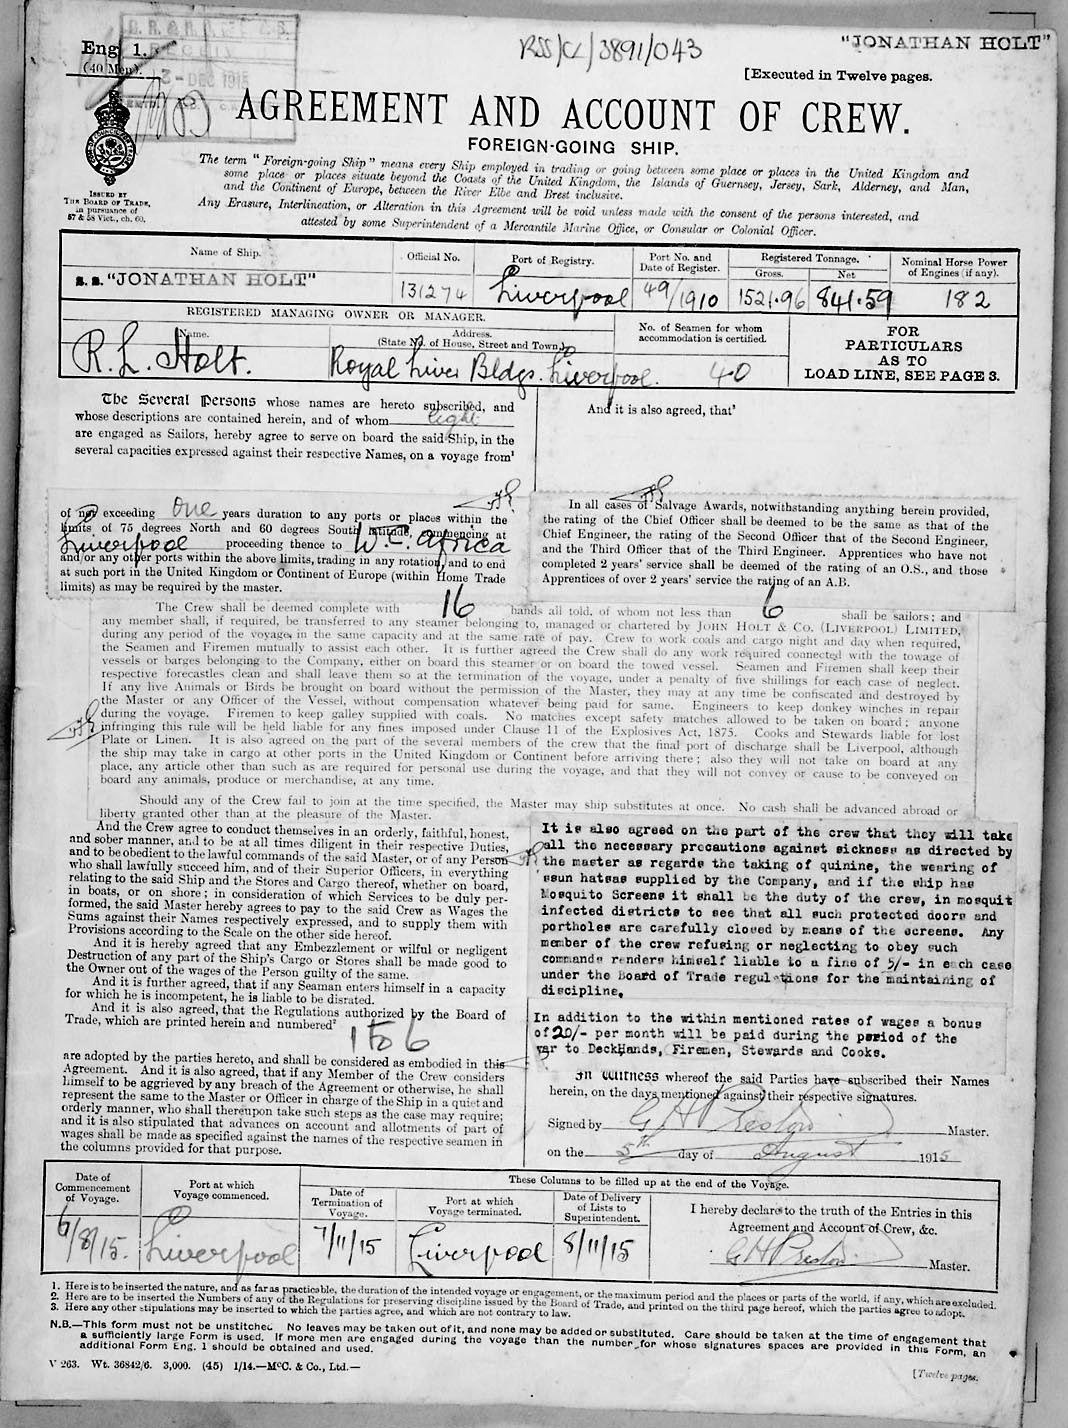 Eng. 1.
(40 Men).
13 - DEC 1915
RSS/CL/3891/043
"JONATHAN HOLT"
[Executed in Twelve pages.
AGREEMENT AND ACCOUNT OF CREW.
FOREIGN-GOING SHIP.
ISSUED BY
THE BOARD OF TRADE,
in pursuance of
57 & 58 Vict., ch. 60.
The term "Foreign-going Ship" means every Ship employed in trading or going between some place or places in the United Kingdom and
some place or places situate beyond the Coasts of the United Kingdom, the Islands of Guernsey, Jersey, Sark, Alderney, and Man,
and the Continent of Europe, between the River Elbe and Brest inclusive.
Any Erasure, Interlineation, or Alteration in this Agreement will be void unless made with the consent of the persons interested, and
attested by some Superintendent of a Mercantile Marine Office, or Consular or Colonial Officer.
Name of Ship. Official No. Port of Registry. Port No. and Date of Register. Registered Tonnage. Gross. Net Nominal Horse Power of Engines (if any).
S. S. "JONATHAN HOLT" 131274 Liverpool 49/1910 1521.96 841.59 182
REGISTERED MANAGING OWNER OR MANAGER.
Name. Address. (State No. of House, Street and Town.) No. of Seamen for whom accommodation is certified.
R. L. Holt. Royal Liver Bldgs. Liverpool. 40
FOR
PARTICULARS
AS TO
LOAD LINE, SEE PAGE 3.
The Several Persons whose names are hereto subscribed, and
whose descriptions are contained herein, and of whom eight
are engaged as Sailors, hereby agree to serve on board the said Ship, in the
several capacities expressed against their respective Names, on a voyage from¹
And it is also agreed, that³
of not exceeding One years duration to any ports or places within the
limits of 75 degrees North and 60 degrees South latitude, commencing at
Liverpool proceeding thence to W. C. Africa
and/or any other ports within the above limits, trading in any rotation, and to end
at such port in the United Kingdom or Continent of Europe (within Home Trade
limits) as may be required by the master.
In all cases of Salvage Awards, notwithstanding anything herein provided,
the rating of the Chief Officer shall be deemed to be the same as that of the
Chief Engineer, the rating of the Second Officer that of the Second Engineer,
and the Third Officer that of the Third Engineer. Apprentices who have not
completed 2 years' service shall be deemed of the rating of an O.S., and those
Apprentices of over 2 years' service the rating of an A.B.
The Crew shall be deemed complete with 16 hands all told, of whom not less than 6 shall be sailors; and
any member shall, if required, be transferred to any steamer belonging to, managed or chartered by JOHN HOLT & CO. (LIVERPOOL) LIMITED,
during any period of the voyage, in the same capacity and at the same rate of pay. Crew to work coals and cargo night and day when required,
the Seamen and Firemen mutually to assist each other. It is further agreed the Crew shall do any work required connected with the towage of
vessels or barges belonging to the Company, either on board this steamer or on board the towed vessel. Seamen and Firemen shall keep their
respective forecastles clean and shall leave them so at the termination of the voyage, under a penalty of five shillings for each case of neglect.
If any live Animals or Birds be brought on board without the permission of the Master, they may at any time be confiscated and destroyed by
the Master or any Officer of the Vessel, without compensation whatever being paid for same. Engineers to keep donkey winches in repair
during the voyage. Firemen to keep galley supplied with coals. No matches except safety matches allowed to be taken on board; anyone
infringing this rule will be held liable for any fines imposed under Clause 11 of the Explosives Act, 1875. Cooks and Stewards liable for lost
Plate or Linen. It is also agreed on the part of the several members of the crew that the final port of discharge shall be Liverpool, although
the ship may take in cargo at other ports in the United Kingdom or Continent before arriving there; also they will not take on board at any
place, any article other than such as are required for personal use during the voyage, and that they will not convey or cause to be conveyed on
board any animals, produce or merchandise, at any time.
Should any of the Crew fail to join at the time specified, the Master may ship substitutes at once. No cash shall be advanced abroad or
liberty granted other than at the pleasure of the Master.
And the Crew agree to conduct themselves in an orderly, faithful, honest,
and sober manner, and to be at all times diligent in their respective Duties,
and to be obedient to the lawful commands of the said Master, or of any Person
who shall lawfully succeed him, and of their Superior Officers, in everything
relating to the said Ship and the Stores and Cargo thereof, whether on board,
in boats, or on shore; in consideration of which Services to be duly per-
formed, the said Master hereby agrees to pay to the said Crew as Wages the
Sums against their Names respectively expressed, and to supply them with
Provisions according to the Scale on the other side hereof.
And it is hereby agreed that any Embezzlement or wilful or negligent
Destruction of any part of the Ship's Cargo or Stores shall be made good to
the Owner out of the wages of the Person guilty of the same.
And it is further agreed, that if any Seaman enters himself in a capacity
for which he is incompetent, he is liable to be disrated.
And it is also agreed, that the Regulations authorized by the Board of
Trade, which are printed herein and numbered²
1 to 6
are adopted by the parties hereto, and shall be considered as embodied in this
Agreement. And it is also agreed, that if any Member of the Crew considers
himself to be aggrieved by any breach of the Agreement or otherwise, he shall
represent the same to the Master or Officer in charge of the Ship in a quiet and
orderly manner, who shall thereupon take such steps as the case may require;
and it is also stipulated that advances on account and allotments of part of
wages shall be made as specified against the names of the respective seamen in
the columns provided for that purpose.
It is also agreed on the part of the crew that they will take
all the necessary precautions against sickness as directed by
the master as regards the taking of quinine, the wearing of
ssun hatsas supplied by the Company, and if the ship has
Mosquito Screens it shall be the duty of the crew, in mosquit
infected districts to see that all such protected doors and
portholes are carefully closed by means of the screens. Any
member of the crew refusing or neglecting to obey such
commands renders himself liable to a fine of 5/- in each case
under the Board of Trade regulations for the maintaining of
discipline.
In addition to the within mentioned rates of wages a bonus
of 20/- per month will be paid during the period of the
war to DeckHands, Firemen, Stewards and Cooks.
In Witness whereof the said Parties have subscribed their Names
herein, on the days mentioned against their respective signatures.
Signed by G H Preston Master.
on the 5th day of August 1915
Date of Commencement of Voyage. Port at which Voyage commenced. These Columns to be filled up at the end of the Voyage.
Date of Termination of Voyage. Port at which Voyage terminated. Date of Delivery of Lists to Superintendent.
6/8/15. Liverpool 7/11/15 Liverpool 8/11/15
I hereby declare to the truth of the Entries in this
Agreement and Account of Crew, &c.
G H Preston Master.
1. Here is to be inserted the nature, and as far as practicable, the duration of the intended voyage or engagement, or the maximum period and the places or parts of the world, if any, which are excluded.
2. Here are to be inserted the Numbers of any of the Regulations for preserving discipline issued by the Board of Trade, and printed on the third page hereof, which the parties agree to adopt.
3. Here any other stipulations may be inserted to which the parties agree, and which are not contrary to law.
N.B.—This form must not be unstitched. No leaves may be taken out of it, and none may be added or substituted. Care should be taken at the time of engagement that
a sufficiently large Form is used. If more men are engaged during the voyage than the number for whose signatures spaces are provided in this Form, an
additional Form Eng. 1 should be obtained and used.
V 263. Wt. 36842/6. 3,000. (45) 1/14.—McC. & Co., Ltd.—
[Twelve pages.